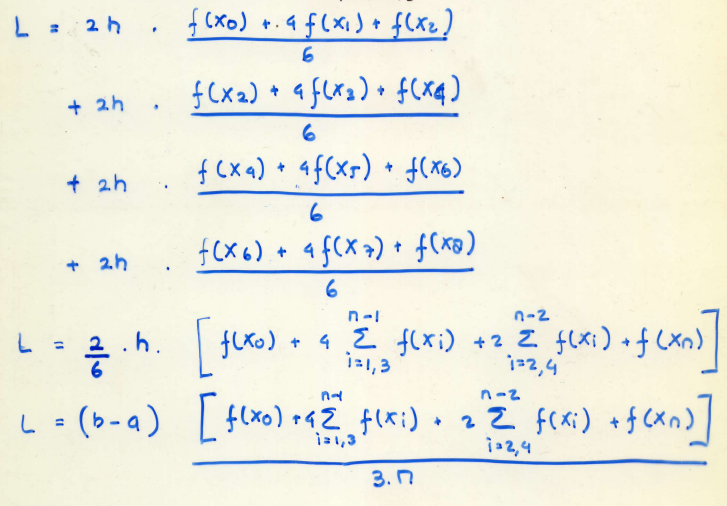 L = 2h . f(x₀) + 4f(x₁) + f(x₂) / 6
+ 2h . f(x₂) + 4f(x₃) + f(x₄) / 6
+ 2h . f(x₄) + 4f(x₅) + f(x₆) / 6
+ 2h . f(x₆) + 4f(x₇) + f(x₈) / 6
L = 2/6 . h. [f(x₀) + 4 Σ_{i=1,3}^{n-1} f(xᵢ) + 2 Σ_{i=2,4}^{n-2} f(xᵢ) + f(xₙ)]
L = (b-a) [f(x₀) + 4 Σ_{i=1,3}^{n-1} f(xᵢ) + 2 Σ_{i=2,4}^{n-2} f(xᵢ) + f(xₙ)] / 3.n